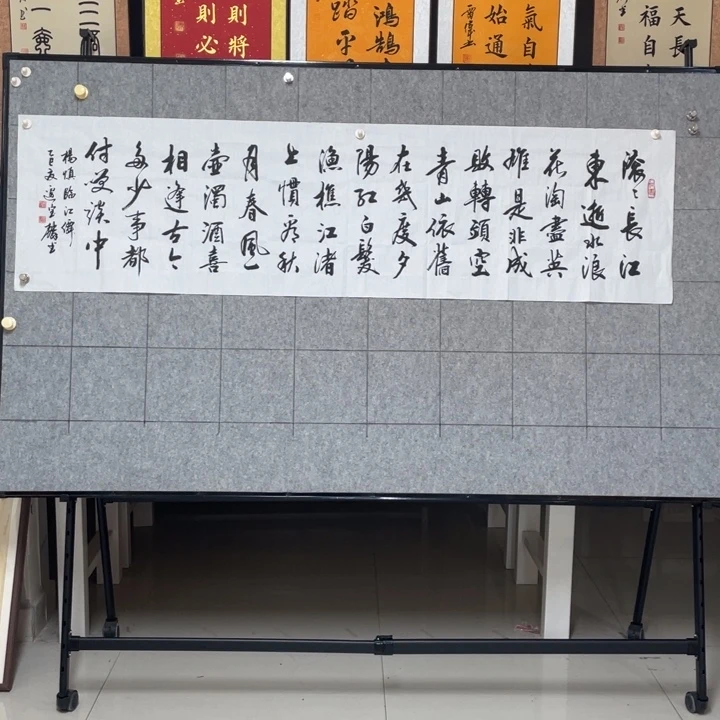 滾〻長江
東逝水浪
花淘盡英
雄是非成
敗轉頭空
青山依舊
在幾度夕
陽紅白髮
漁樵江渚
上慣看秋
月春風一
壺濁酒喜
相逢古今
多少事都
付笑談中
楊慎臨江僊
乙巳夏
天長
福自
氣自
始通
鴻鵠
踏平
則將
則必